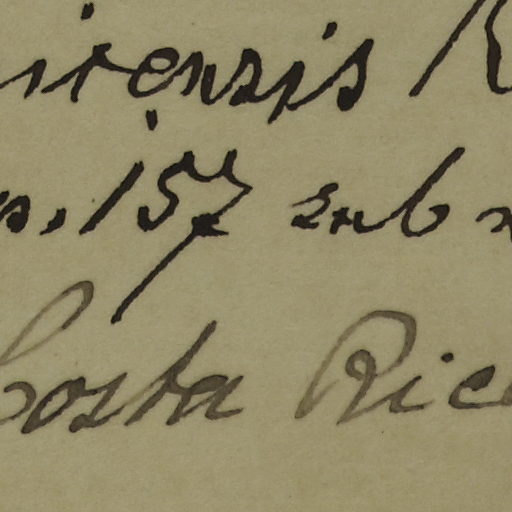 irensis R
p. 157 sub n
Costa Rica